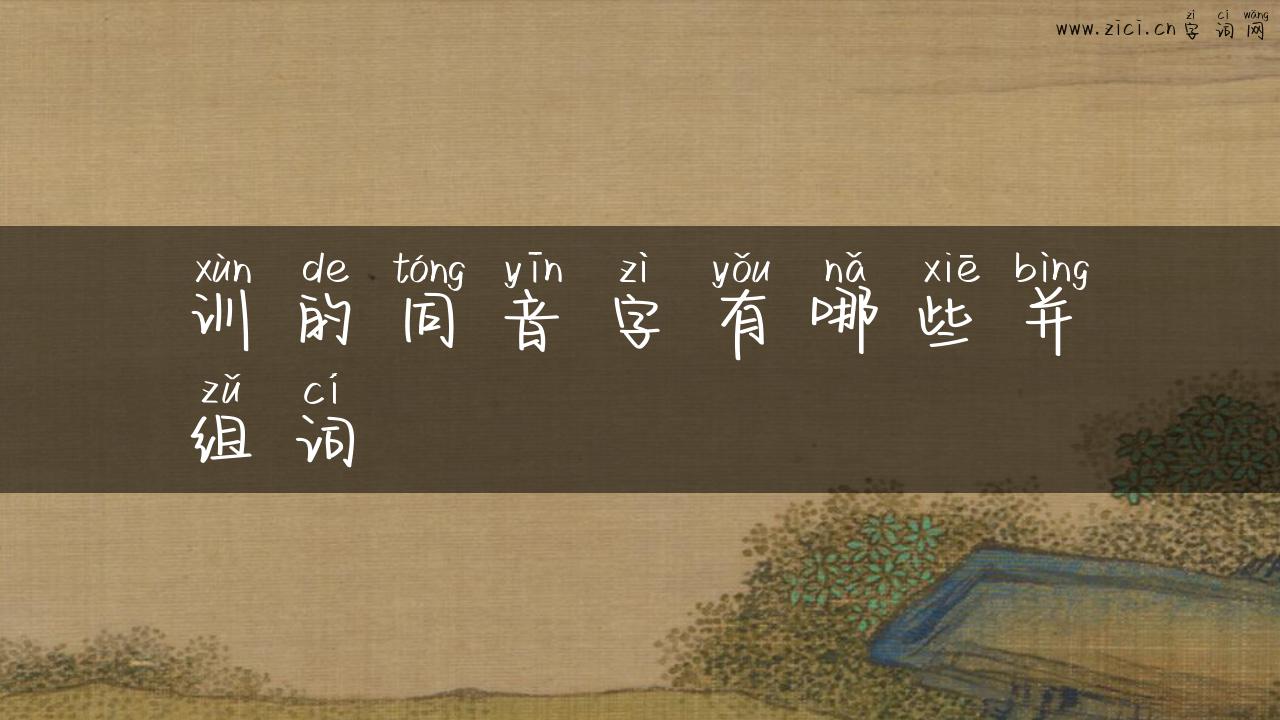 www.zici.cn
zì cí wǎng
字词网
xùn de tóng yīn zì yǒu nǎ xiē bìng
训的同音字有哪些并
zǔ cí
组词